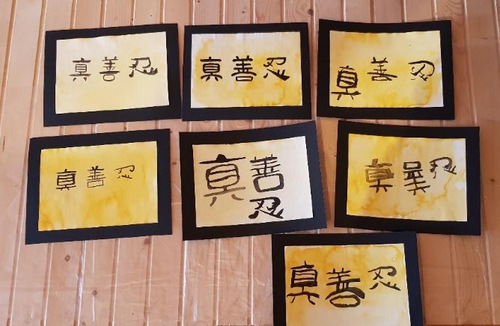 真善忍
真善忍
真善忍
真善忍
真善
忍
真善忍
真善忍